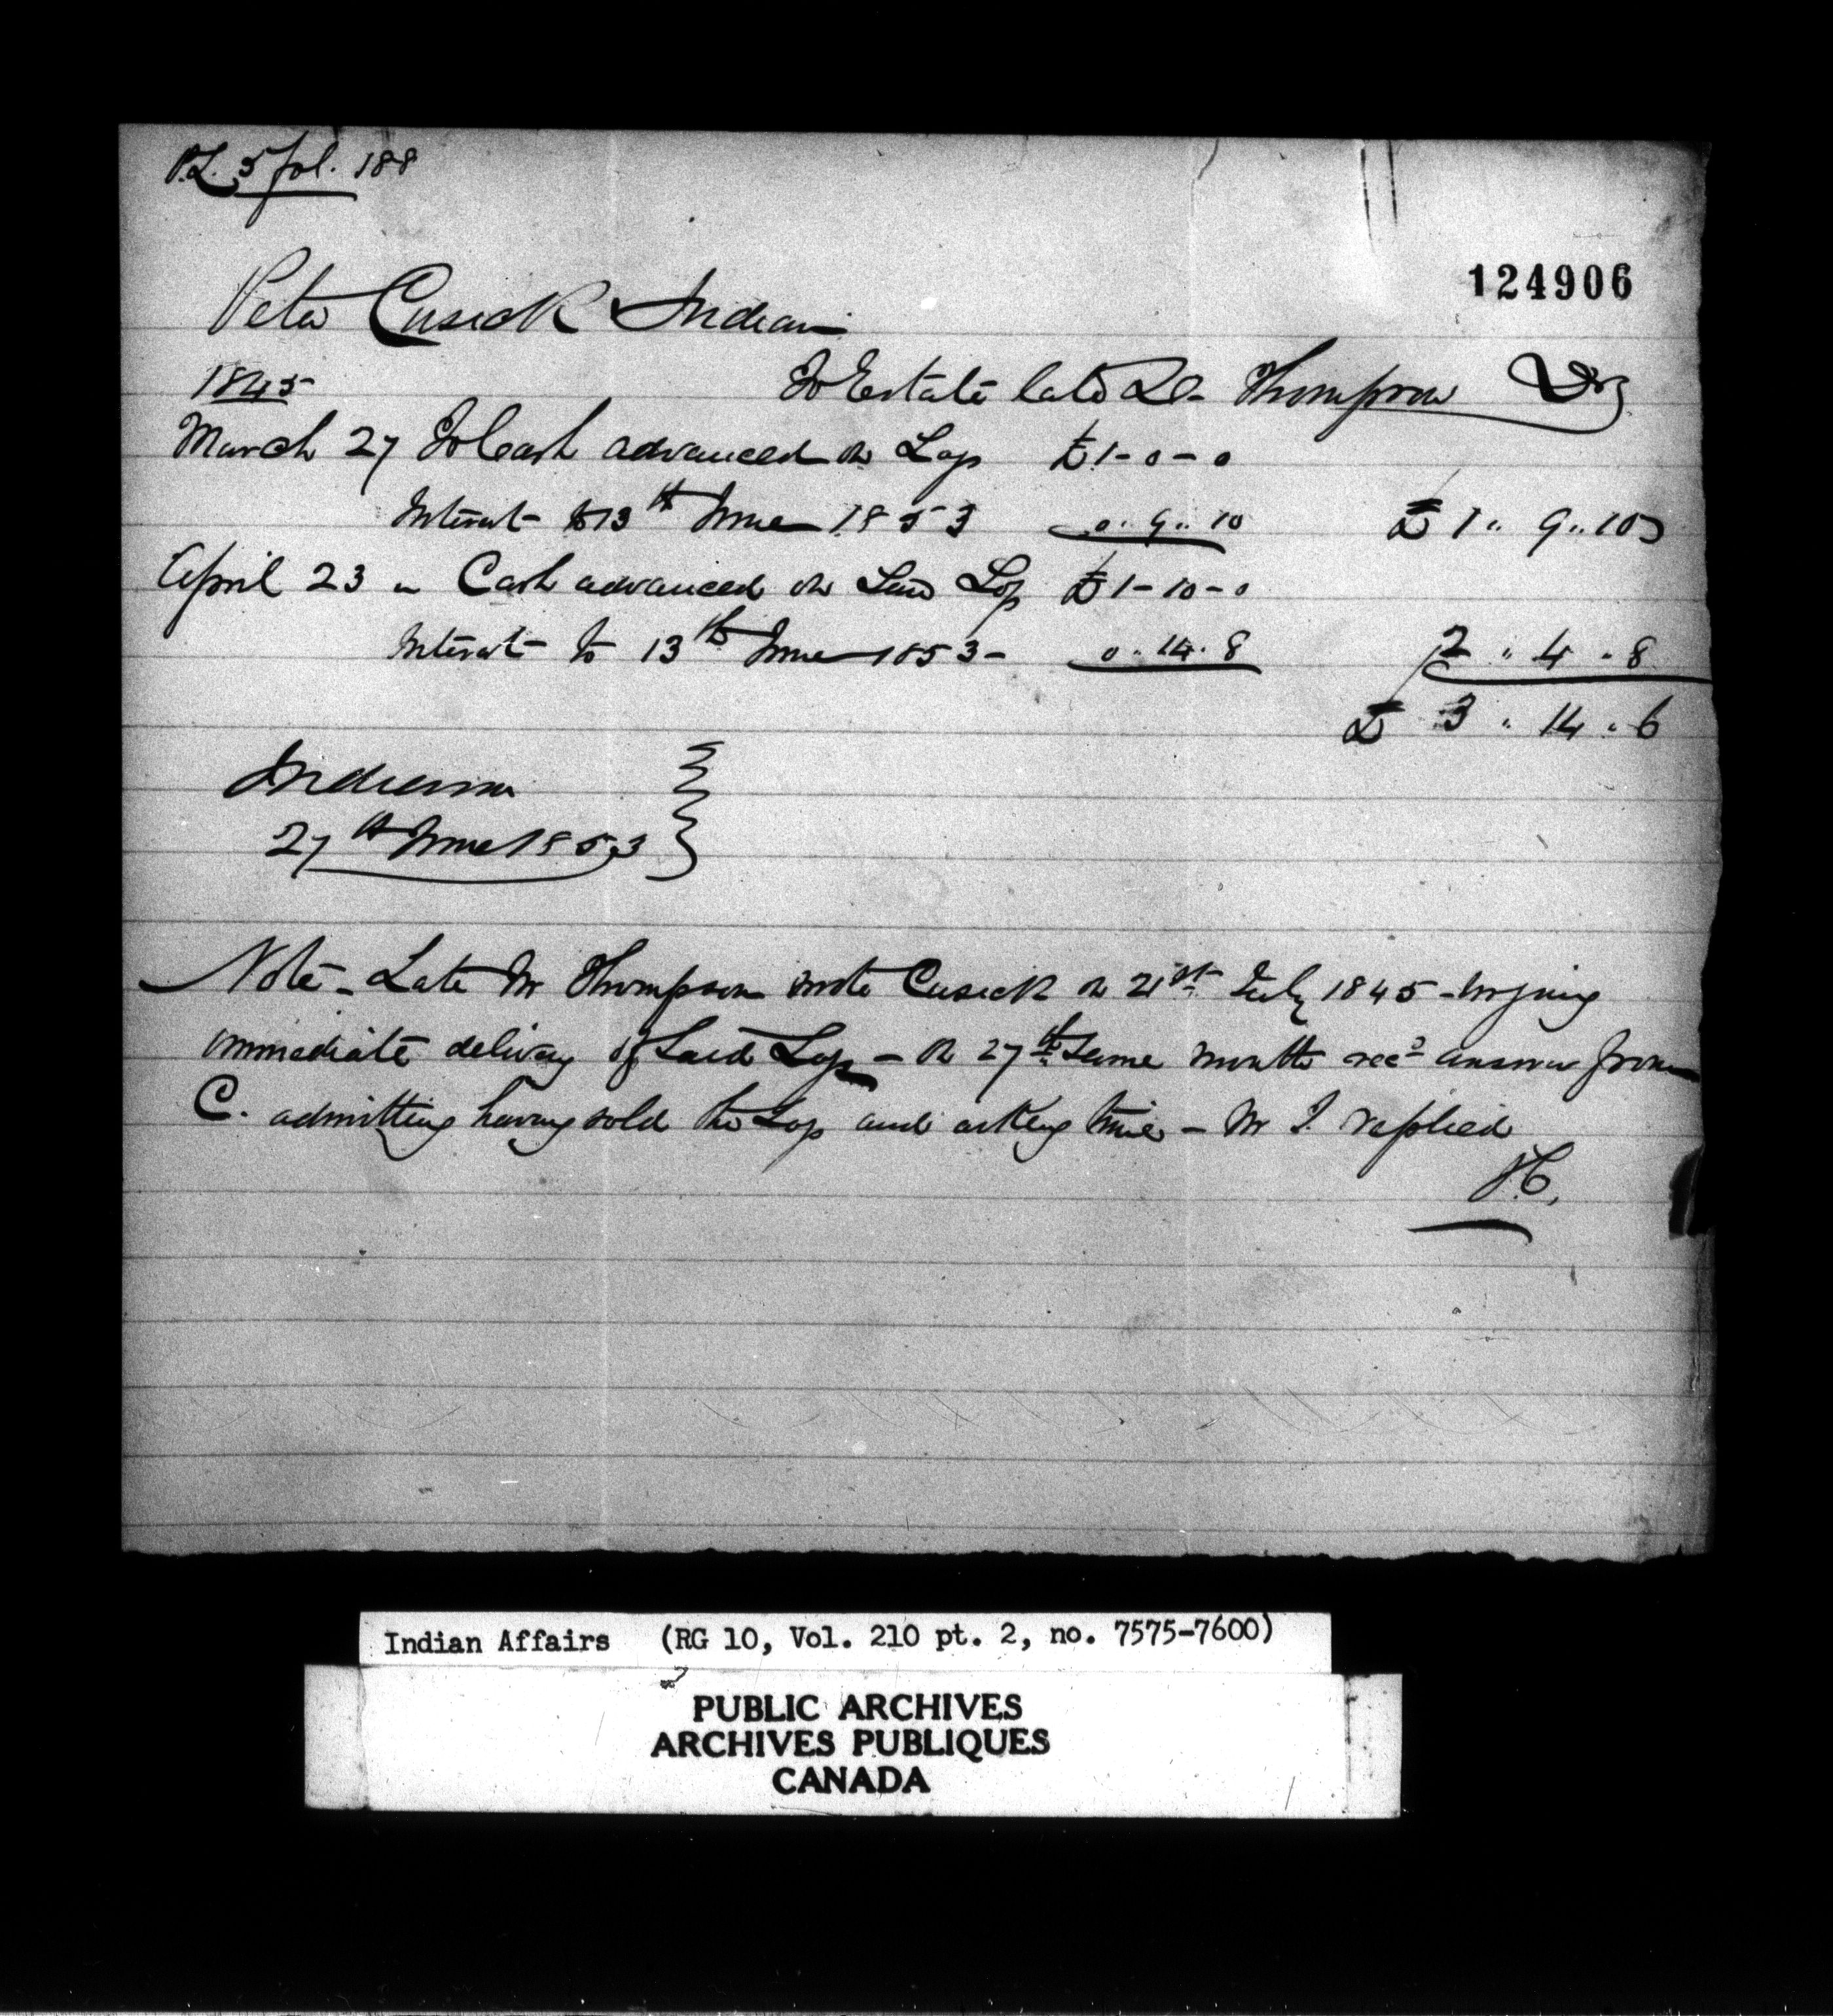 P.L. 5 fol. 188
124906
Peter Cusick Indian
1845 To Estate late D. Thompson Dr
March 27 To Cash advanced on Logs £1-0-0
Interest to 13th June 1853 0 " 9 " 10 £ 1 " 9 " 10
April 23 " Cash advanced on Said Logs £1-10-0
Interest to 13th June 1853- 0 " 14 " 8 2 " 4 " 8
£ 3 " 14 " 6
Indiana
27th June 1853
Note - Late Mr Thompson wrote Cusick on 21st July 1845 - urging
immediate delivery of Said Logs - On 27th same month recd answer from
C. admitting having sold the Logs and asking time - Mr T. replied
J.C.
Indian Affairs (RG 10, Vol. 210 pt. 2, no. 7575-7600)
PUBLIC ARCHIVES
ARCHIVES PUBLIQUES
CANADA